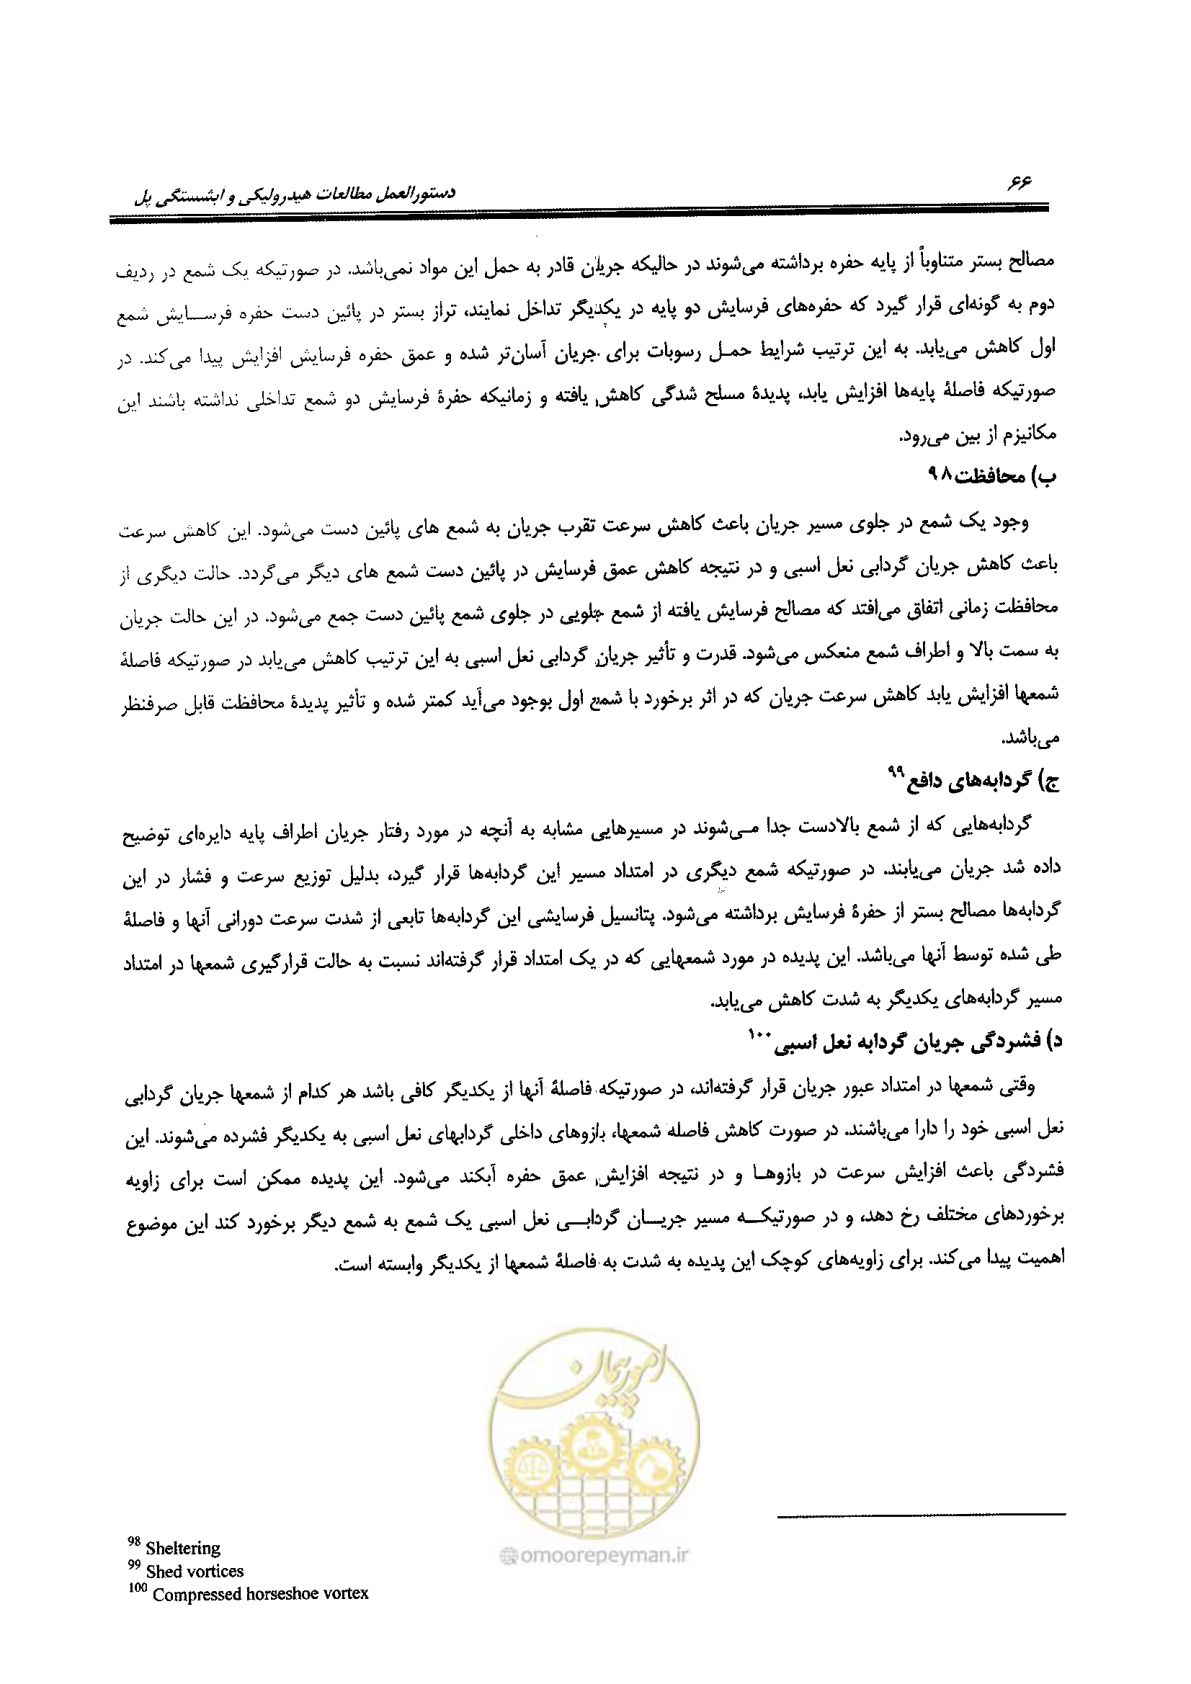 ۶۶
دستورالعمل مطالعات هیدرولیکی و ابشستگی پل
مصالح بستر متناوباً از پایه حفره برداشته می‌شوند در حالیکه جریان قادر به حمل این مواد نمی‌باشد. در صورتیکه یک شمع در ردیف
دوم به گونه‌ای قرار گیرد که حفره‌های فرسایش دو پایه در یکدیگر تداخل نمایند، تراز بستر در پائین دست حفره فرسایش شمع
اول کاهش می‌یابد. به این ترتیب شرایط حمل رسوبات برای جریان آسان‌تر شده و عمق حفره فرسایش افزایش پیدا می‌کند. در
صورتیکه فاصلهٔ پایه‌ها افزایش یابد، پدیدهٔ مسلح شدگی کاهش یافته و زمانیکه حفرهٔ فرسایش دو شمع تداخلی نداشته باشند این
مکانیزم از بین می‌رود.
ب) محافظت۹۸
وجود یک شمع در جلوی مسیر جریان باعث کاهش سرعت تقرب جریان به شمع های پائین دست می‌شود. این کاهش سرعت
باعث کاهش جریان گردابی نعل اسبی و در نتیجه کاهش عمق فرسایش در پائین دست شمع های دیگر می‌گردد. حالت دیگری از
محافظت زمانی اتفاق می‌افتد که مصالح فرسایش یافته از شمع جلویی در جلوی شمع پائین دست جمع می‌شود. در این حالت جریان
به سمت بالا و اطراف شمع منعکس می‌شود. قدرت و تأثیر جریان گردابی نعل اسبی به این ترتیب کاهش می‌یابد در صورتیکه فاصلهٔ
شمعها افزایش یابد کاهش سرعت جریان که در اثر برخورد با شمع اول بوجود می‌آید کمتر شده و تأثیر پدیدهٔ محافظت قابل صرفنظر
می‌باشد.
ج) گردابه‌های دافع۹۹
گردابه‌هایی که از شمع بالادست جدا می‌شوند در مسیرهایی مشابه به آنچه در مورد رفتار جریان اطراف پایه دایره‌ای توضیح
داده شد جریان می‌یابند. در صورتیکه شمع دیگری در امتداد مسیر این گردابه‌ها قرار گیرد، بدلیل توزیع سرعت و فشار در این
گردابه‌ها مصالح بستر از حفرهٔ فرسایش برداشته می‌شود. پتانسیل فرسایشی این گردابه‌ها تابعی از شدت سرعت دورانی آنها و فاصلهٔ
طی شده توسط آنها می‌باشد. این پدیده در مورد شمعهایی که در یک امتداد قرار گرفته‌اند نسبت به حالت قرارگیری شمعها در امتداد
مسیر گردابه‌های یکدیگر به شدت کاهش می‌یابد.
د) فشردگی جریان گردابه نعل اسبی۱۰۰
وقتی شمعها در امتداد عبور جریان قرار گرفته‌اند، در صورتیکه فاصلهٔ آنها از یکدیگر کافی باشد هر کدام از شمعها جریان گردابی
نعل اسبی خود را دارا می‌باشند. در صورت کاهش فاصله شمعها، بازوهای داخلی گردابهای نعل اسبی به یکدیگر فشرده می‌شوند. این
فشردگی باعث افزایش سرعت در بازوها و در نتیجه افزایش عمق حفره آبکند می‌شود. این پدیده ممکن است برای زاویه
برخوردهای مختلف رخ دهد، و در صورتیکه مسیر جریان گردابی نعل اسبی یک شمع به شمع دیگر برخورد کند این موضوع
اهمیت پیدا می‌کند. برای زاویه‌های کوچک این پدیده به شدت به فاصلهٔ شمعها از یکدیگر وابسته است.
امور پیمان
@omoorepeyman.ir
98 Sheltering
99 Shed vortices
100 Compressed horseshoe vortex